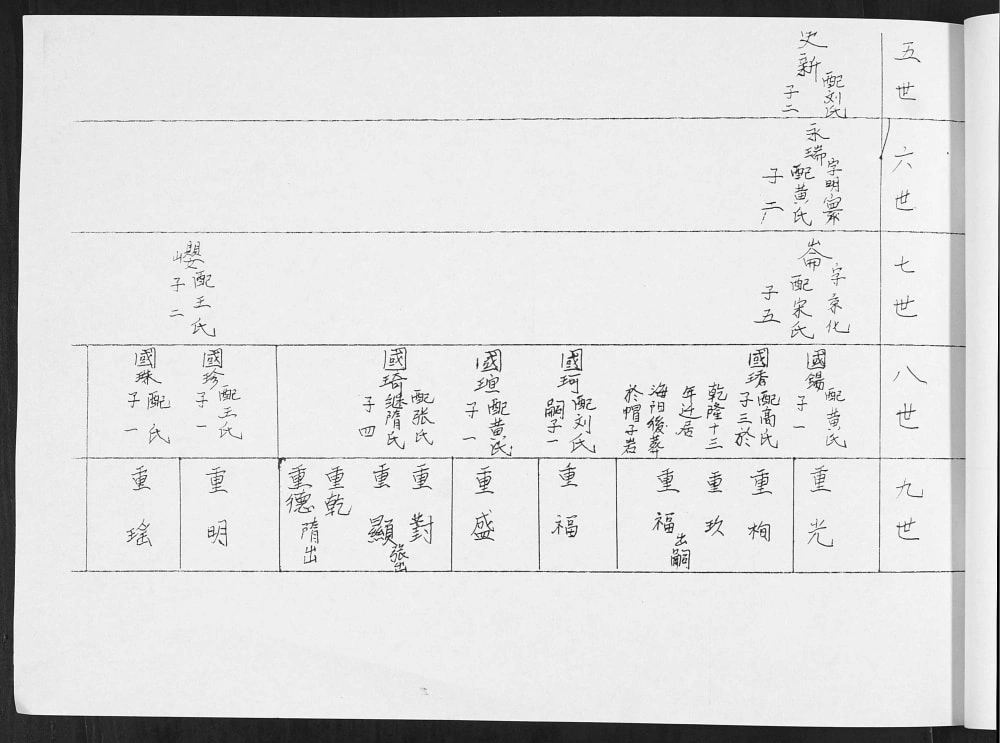 五世
史新
配刘氏
子二
六世
永瑞
字明寰
配黄氏
子二
七世
崙
字京化
配宋氏
子五
嶿配王氏
子二
八世
國錫
配黄氏
子一
國琇
配高氏
子三於
乾隆十三
年迁居
海阳後葬
於帽子岩
國珂
配刘氏
嗣子一
國瑄
配黄氏
子一
國琦
配張氏
継隋氏
子四
國珍
配王氏
子一
國珠
配 氏
子一
九世
重光
重栒
重玖
重福
出嗣
重福
重盛
重對
重顯
張出
重乾
重德
隋出
重明
重瑤